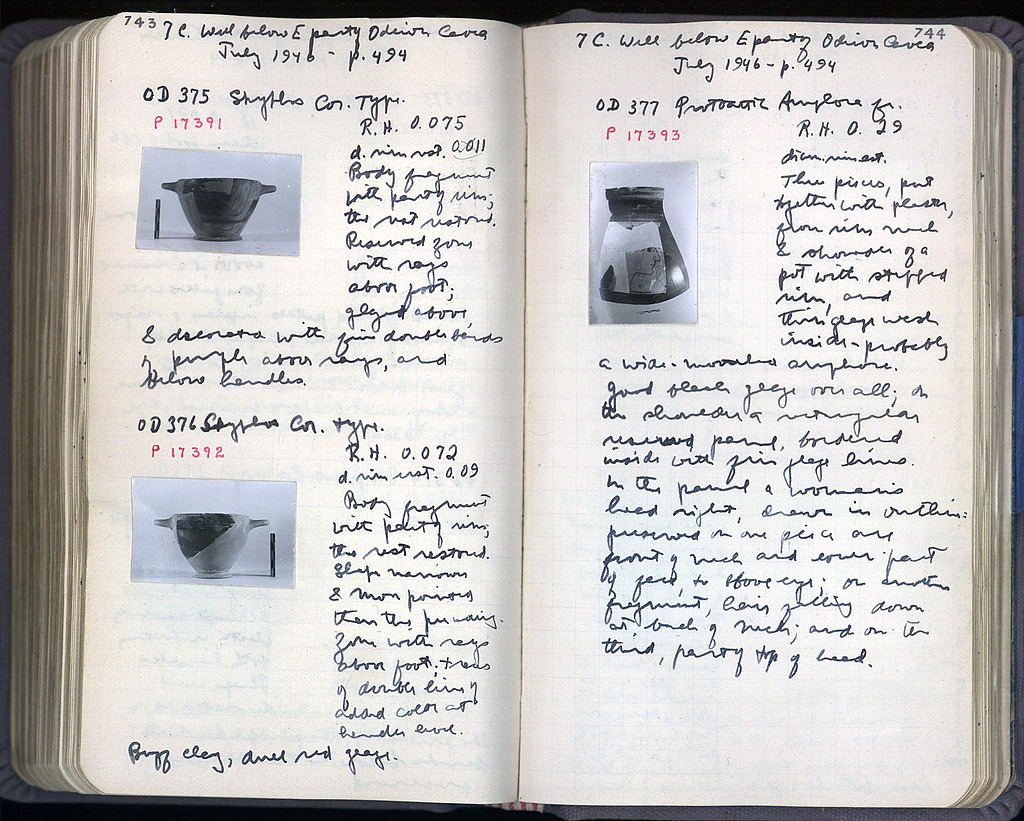 743
7 C. Well below E part of Odeion Cavea
July 1946 - p. 494
OD 375 Skyphos Cor. Type.
P 17391
R.H. 0.075
d. rim rest. 0.011
Body fragment
with part of rim;
the rest restored.
Reserved zone
with rays
above foot;
glazed above,
& decorated with fine double bands
of purple above rays, and
below handles.
OD 376 Skyphos Cor. type.
P 17392
R.H. 0.072
d. rim rest. 0.09
Body fragment
with part of rim;
the rest restored.
Shape narrower
& more pointed
than the preceding.
Zone with rays
above foot; traces
of double line of
added color at
handle level.
Buff clay, dull red glaze.
744
7 C. Well below E part of Odeion Cavea
July 1946 - p. 494
OD 377 Protoattic Amphora fr.
P 17393
R.H. 0.29
diam. rim est.
Three pieces, put
together with plaster,
from rim neck
& shoulder of a
pot with
rim, and
thin glaze wash
inside - probably
a wide-mouthed amphora.
Good black glaze over all; on
the shoulder a rectangular
reserved panel, bordered
inside with fine glaze lines.
In the panel a woman's
head right, drawn in outline:
preserved on one piece are
front of neck and lower part
of face, to above eye; on another
fragment, hair falling down
at back of neck; and on the
third, part of top of head.